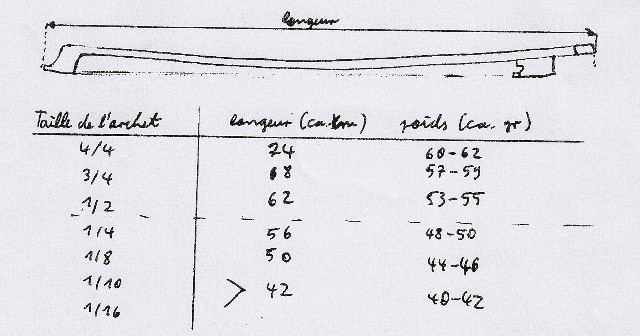 longeur
Taille de l'archet longeur (ca. cm) poids (ca. gr)
4/4 74 60-62
3/4 68 57-59
1/2 62 53-55
1/4 56 48-50
1/8 50 44-46
1/10
> 42 40-42
1/16